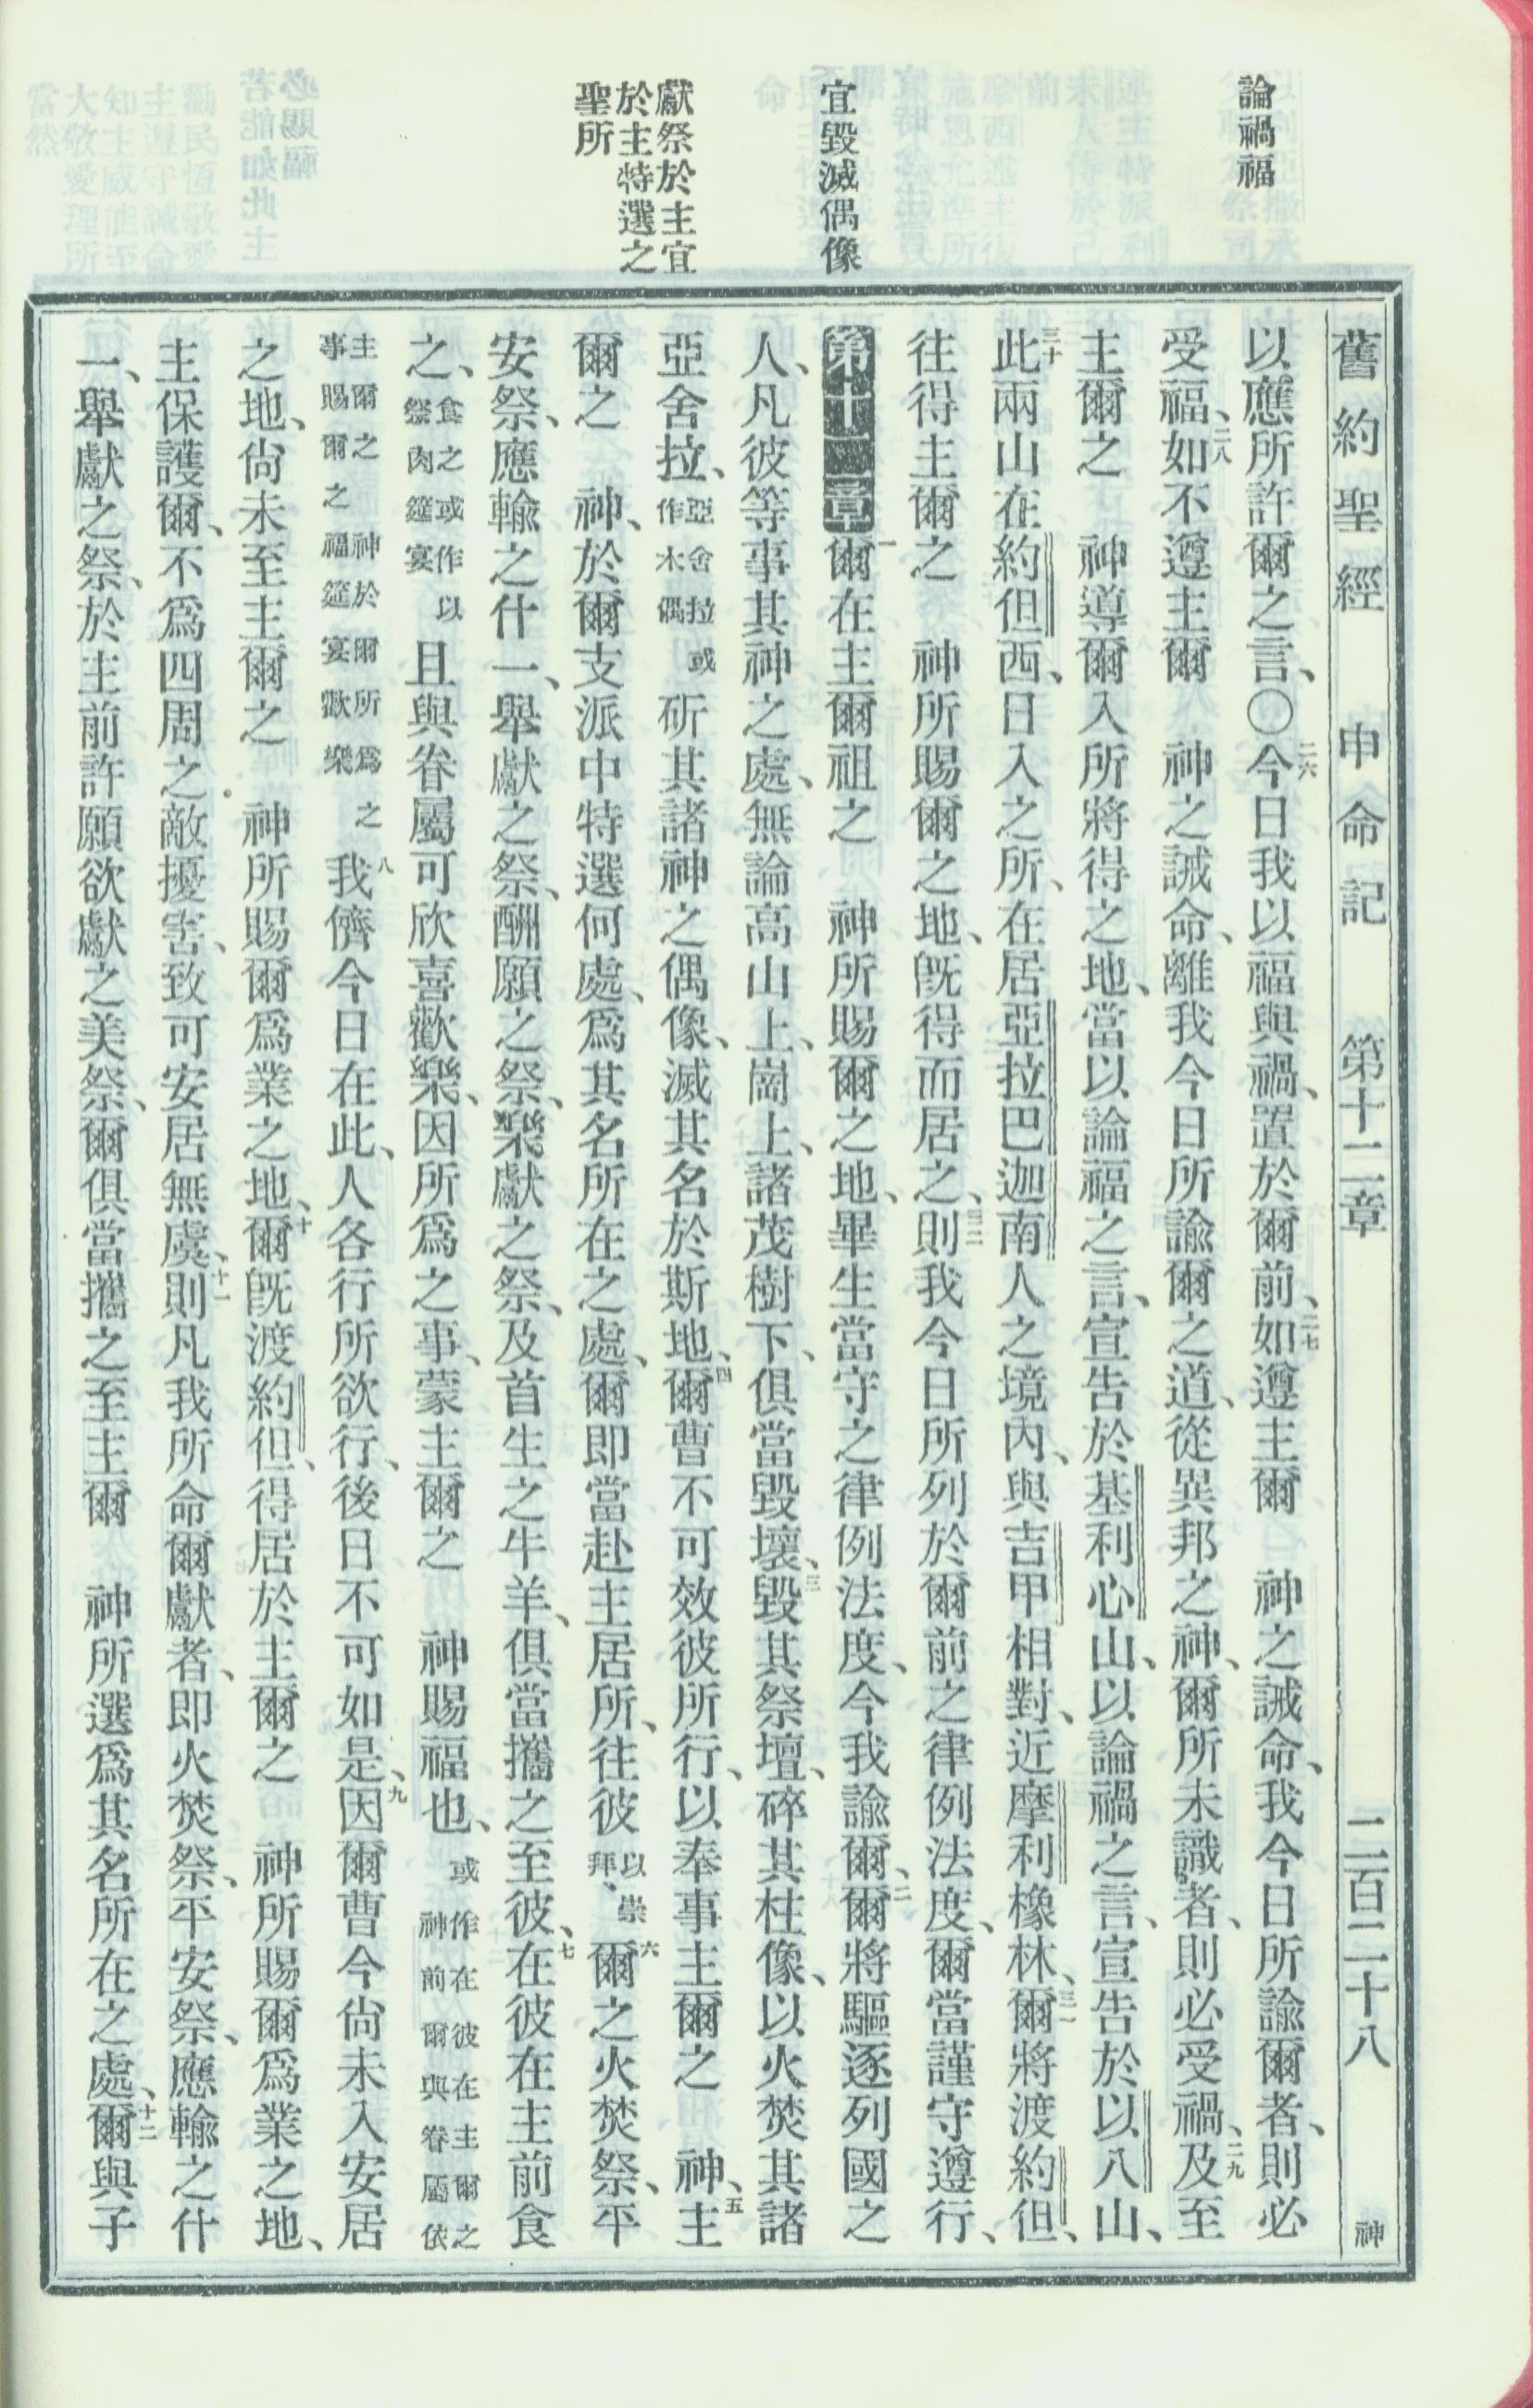 論禍福
宜毀滅偶像
獻祭於主宜
於主特選之
聖所
舊約聖經　申命記　第十二章　二百二十八　神
以應所許爾之言、〇二六今日我以福與禍、置於爾前、二七如遵主爾　神之誡命、我今日所諭爾者、則必
受福、二八如不遵主爾　神之誡命、離我今日所諭爾之道、從異邦之神、爾所未識者、則必受禍、二九及至
主爾之　神導爾入所將得之地、當以論福之言、宣告於基利心山、以論禍之言、宣告於以八山、
三十此兩山在約但西、日入之所、在居亞拉巴迦南人之境內、與吉甲相對、近摩利橡林、三一爾將渡約但、
往得主爾之　神所賜爾之地、旣得而居之、三二則我今日所列於爾前之律例法度、爾當謹守遵行、
第十二章一爾在主爾祖之　神所賜爾之地、畢生當守之律例法度、今我諭爾、二爾將驅逐列國之
人、凡彼等事其神之處、無論高山上、崗上、諸茂樹下、俱當毀壞、三毀其祭壇、碎其柱像、以火焚其諸
亞舍拉、亞舍拉或作木偶斫其諸神之偶像、滅其名於斯地、四爾曹不可效彼所行、以奉事主爾之　神、五主
爾之　神、於爾支派中特選何處、爲其名所在之處、爾即當赴主居所、往彼以崇拜、六爾之火焚祭、平
安祭、應輸之什一、舉獻之祭、酬願之祭、樂獻之祭、及首生之牛羊、俱當攜之至彼、七在彼在主前食
之、食之或作以祭肉筵宴且與眷屬可欣喜歡樂、因所爲之事、蒙主爾之　神賜福也、或作在彼在主爾之神前爾與眷屬依
主爾之　神於爾所爲之事賜爾之福筵宴歡樂八我儕今日在此、人各行所欲行、後日不可如是、九因爾曹今尙未入安居
之地、尙未至主爾之　神所賜爾爲業之地、十爾旣渡約但、得居於主爾之　神所賜爾爲業之地、
主保護爾、不爲四周之敵擾害、致可安居無虞、十一則凡我所命爾獻者、即火焚祭、平安祭、應輸之什
一、舉獻之祭、於主前許願欲獻之美祭、爾俱當攜之至主爾　神所選爲其名所在之處、十二爾與子